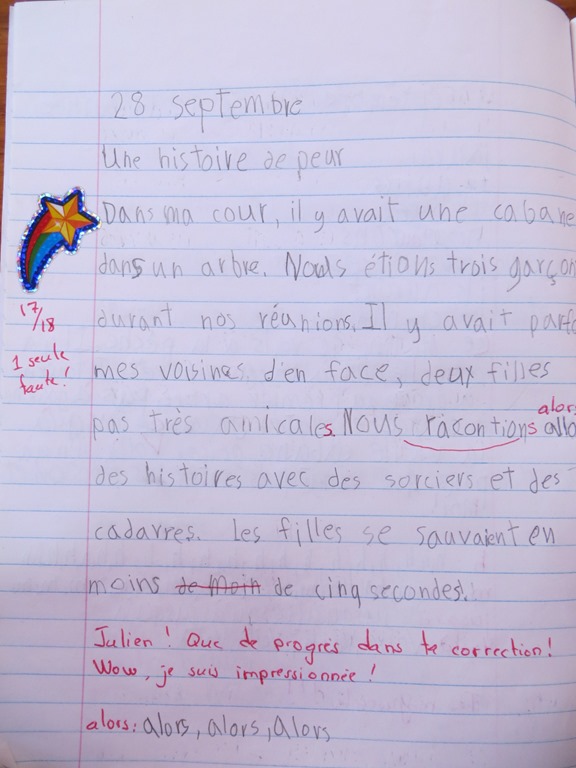 28 septembre
Une histoire de peur
Dans ma cour, il y avait une cabane
dans un arbre. Nous étions trois garçon
durant nos réunions. Il y avait parfo
17/18
1 seule
faute!
mes voisines d'en face, deux filles
alor
pas très amicales. Nous racontions allo
des histoires avec des sorciers et des
cadavres. Les filles se sauvaient en
moins de moin de cinq secondes.
Julien! Que de progrès dans ta correction!
Wow, je suis impressionnée!
alors: alors, alors, alors